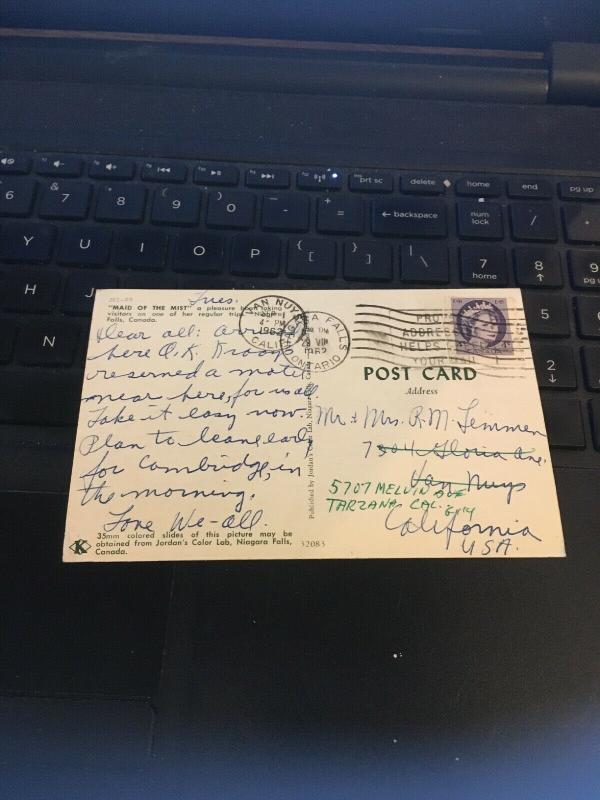 prt sc
delete
home
end
pg up
6
&
7
*
8
(
9
)
0
-
+
=
← backspace
num
lock
/
Y
U
I
O
P
{
[
}
]
|
\
7
home
8
9
H
J
N
5
6
2
↓
"MAID OF THE MIST" a pleasure boat taking
visitors on one of her regular trips. Niagara
Falls, Canada.
Tues.
Dear all: Arrived
here O.K.
reserved a motel
near here for us all.
Take it easy now.
Plan to leave early
for Cambridge, in
the morning.
Love We-all.
35mm colored slides of this picture may be
obtained from Jordan's Color Lab, Niagara Falls,
Canada.
K
32083
Published by Jordan's Color Lab, Niagara Falls, Canada
VAN NUYS
4 PM
1962
CALIF
NIAGARA FALLS
PM
VII
1962
ONTARIO
PROPER
ADDRESSING
HELPS SPEED
YOUR MAIL
POST CARD
Address
Mr & Mrs. R. M. Lemmen
7304 Gloria Ave.
Van Nuys
5707 MELVIN AVE
TARZANA, CAL.
California
USA.